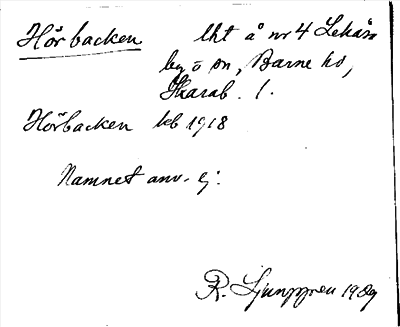 Hörbacken lht å nr 4 Lekåsa
by o sn, Barne hd,
Skarab. l.
Hörbacken kb 1918
Namnet anv. ej.
R. Ljunggren 1989